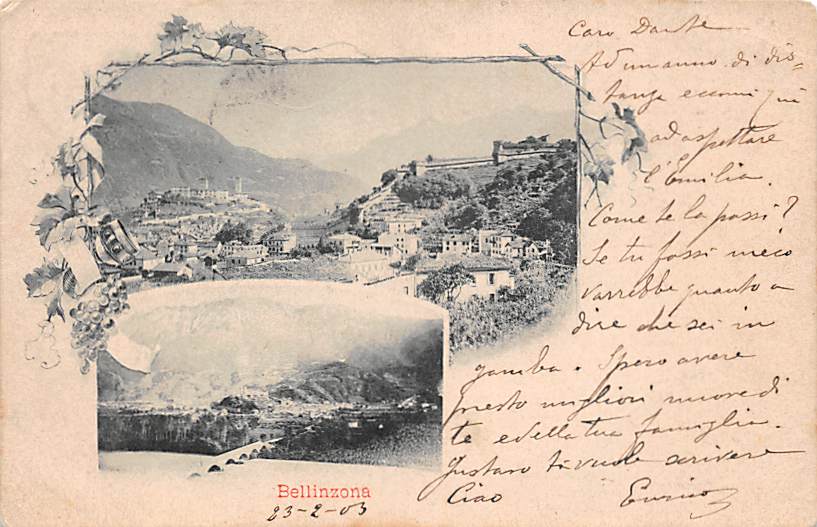 Caro Dante
Ad un anno di dis-
tanza eccomi qui
ad aspettare
l'Emilia.
Come te la passi?
Se tu fossi meco
varrebbe quanto a
dire che sei in
gamba. Spero avere
presto migliori nuove di
te e della tua famiglia.
Gustavo ti vuole scrivere
Ciao Enrico
Bellinzona
23-2-03